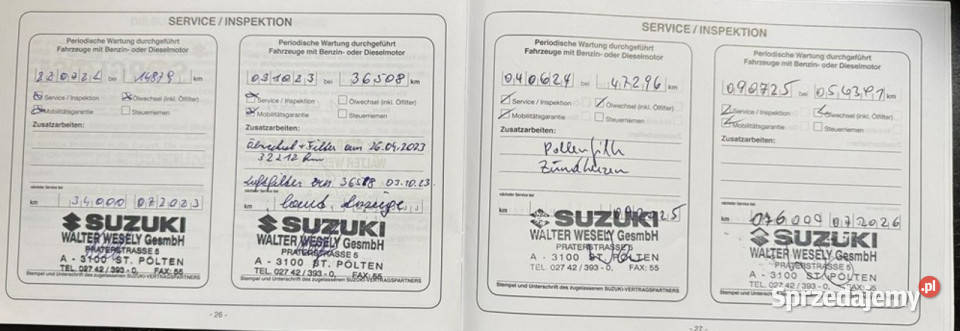 SERVICE / INSPEKTION
Periodische Wartung durchgeführt
Fahrzeuge mit Benzin- oder Dieselmotor
bei km
Service / Inspektion Ölwechsel (inkl. Ölfilter)
Mobilitätsgarantie Steuerriemen
Zusatzarbeiten:
nächster Service bei
km 34000 072023
SUZUKI
WALTER WESELY GesmbH
PRATERSTRASSE 5
A - 3100 ST. PÖLTEN
TEL. 027 42 / 393 - 0, FAX: 55
Stempel und Unterschrift des zugelassenen SUZUKI-VERTRAGSPARTNERS
Periodische Wartung durchgeführt
Fahrzeuge mit Benzin- oder Dieselmotor
031023 bei 36508 km
Service / Inspektion Ölwechsel (inkl. Ölfilter)
Mobilitätsgarantie Steuerriemen
Zusatzarbeiten:
Ölwechsel + Filter am 26.04.2023
32212 km
Luftfilter 03.10.23
nächster Service bei
laut Anzeige
SUZUKI
WALTER WESELY GesmbH
PRATERSTRASSE 5
A - 3100 ST. PÖLTEN
TEL. 027 42 / 393 - 0, FAX: 55
Stempel und Unterschrift des zugelassenen SUZUKI-VERTRAGSPARTNERS
- 26 -
SERVICE / INSPEKTION
Periodische Wartung durchgeführt
Fahrzeuge mit Benzin- oder Dieselmotor
040624 bei 47296 km
Service / Inspektion Ölwechsel (inkl. Ölfilter)
Mobilitätsgarantie Steuerriemen
Zusatzarbeiten:
Pollenfilter
Zündkerzen
nächster Service bei
km
SUZUKI
WALTER WESELY GesmbH
PRATERSTRASSE 5
A - 3100 ST. PÖLTEN
TEL. 027 42 / 393 - 0, FAX: 55
Stempel und Unterschrift des zugelassenen SUZUKI-VERTRAGSPARTNERS
Periodische Wartung durchgeführt
Fahrzeuge mit Benzin- oder Dieselmotor
090725 bei km
Service / Inspektion Ölwechsel (inkl. Ölfilter)
Mobilitätsgarantie Steuerriemen
Zusatzarbeiten:
nächster Service bei
072026
SUZUKI
WALTER WESELY GesmbH
PRATERSTRASSE 5
A - 3100 ST. PÖLTEN
TEL. 027 42 / 393 - 0, FAX: 55
Stempel und Unterschrift des zugelassenen SUZUKI-VERTRAGSPARTNERS
- 27 -
Sprzedajemy.pl